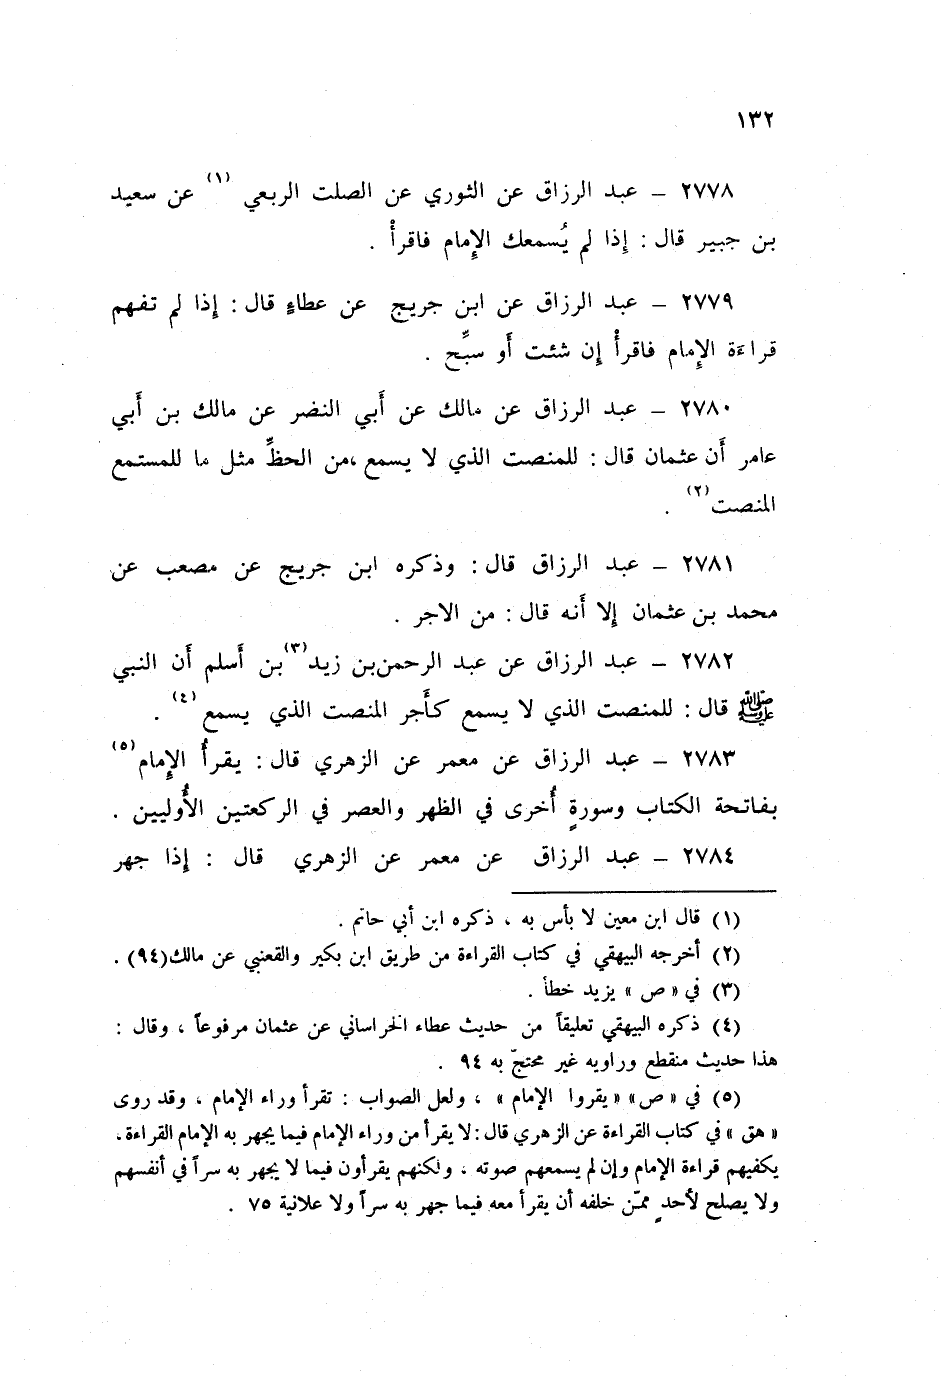 ١٣٢
٢٧٧٨ – عبد الرزاق عن الثوري عن الصلت الربعي (١) عن سعيد
بن جبير قال : إذا لم يُسمعك الإمام فاقرأْ .
٢٧٧٩ – عبد الرزاق عن ابن جريج عن عطاءٍ قال : إذا لم تفهم
قراءَة الإمام فاقرأْ إن شئت أَو سبِّح .
٢٧٨٠ – عبد الرزاق عن مالك عن أَبي النضر عن مالك بن أَبي
عامر أَن عثمان قال : للمنصت الذي لا يسمع ،من الحظِّ مثل ما للمستمع
المنصت (٢) .
٢٧٨١ – عبد الرزاق قال : وذكره ابن جريج عن مصعب عن
محمد بن عثمان إلا أَنه قال : من الاجر .
٢٧٨٢ – عبد الرزاق عن عبد الرحمن بن زيد (٣) بن أَسلم أَن النبي
ﷺ قال : للمنصت الذي لا يسمع كأَجر المنصت الذي يسمع (٤) .
٢٧٨٣ – عبد الرزاق عن معمر عن الزهري قال : يقرأُ الإمام (٥)
بفاتحة الكتاب وسورةٍ أُخرى في الظهر والعصر في الركعتين الأُوليين .
٢٧٨٤ – عبد الرزاق عن معمر عن الزهري قال : إذا جهر
(١) قال ابن معين لا بأس به ، ذكره ابن أبي حاتم .
(٢) أخرجه البيهقي في كتاب القراءة من طريق ابن بكير والقعنبي عن مالك(٩٤) .
(٣) في « ص » يزيد خطأ .
(٤) ذكره البيهقي تعليقاً من حديث عطاء الخراساني عن عثمان مرفوعاً ، وقال :
هذا حديث منقطع وراويه غير محتجّ به ٩٤ .
(٥) في « ص » « يقروا الإمام » ، ولعل الصواب : تقرأ وراء الإمام ، وقد روى
« هق » في كتاب القراءة عن الزهري قال : لا يقرأ من وراء الإمام فيما يجهر به الإمام القراءة ،
يكفيهم قراءة الإمام وإن لم يسمعهم صوته ، ولكنهم يقرأون فيما لا يجهر به سراً في أنفسهم
ولا يصلح لأحدٍ ممّن خلفه أن يقرأ معه فيما جهر به سراً ولا علانية ٧٥ .